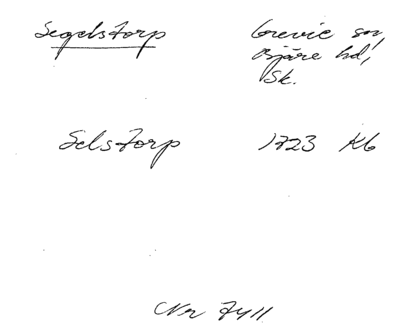 Segelstorp Grevie sn,
Bjäre hd,
Sk.
Selstorp 1723 Kb
Nr 7411